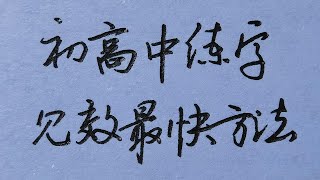 初高中练字
见效最快方法